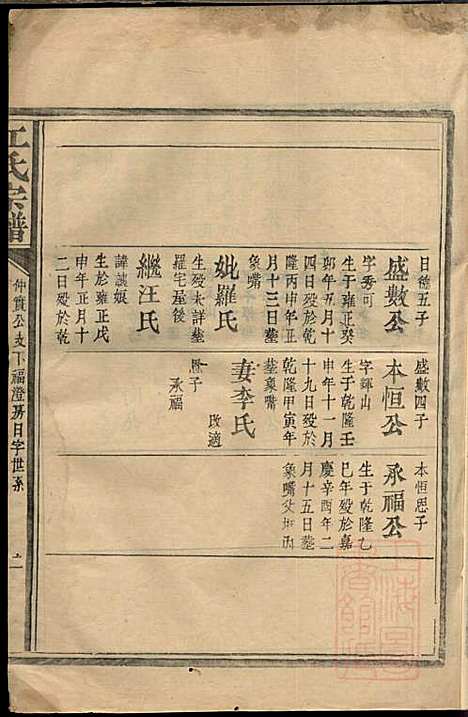 日德五子
盛數公
字秀可
生于雍正癸
卯年五月十
四日殁於乾
隆丙申年正
月十三日墓
象嘴
妣羅氏
生殁未詳墓
羅宅屋後
繼汪氏
諱議娘
生於雍正戊
申年正月十
二日殁於乾
盛數四子
本恒公
字輝山
生于乾隆壬
申年十一月
十九日殁於
乾隆甲寅年
墓象嘴
妻李氏
改適
一子
承福
本恒恩子
承福公
生于乾隆乙
巳年殁於嘉
慶辛酉年二
月十五日墓
象嘴父墳
江氏宗譜
仲實公支下福澄房日字世系